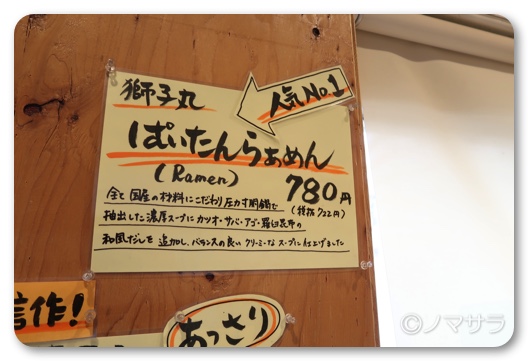 獅子丸
人気No.1
ぱいたんらぁめん
(Ramen)
780円
(税抜722円)
全て国産の材料にこだわり圧力寸胴鍋で
抽出した濃厚スープにカツオ・サバ・アゴ・羅臼昆布の
和風だしを追加し、バランスの良いクリーミーなスープに仕上げました
信作!
あっさり
©ノマサラ